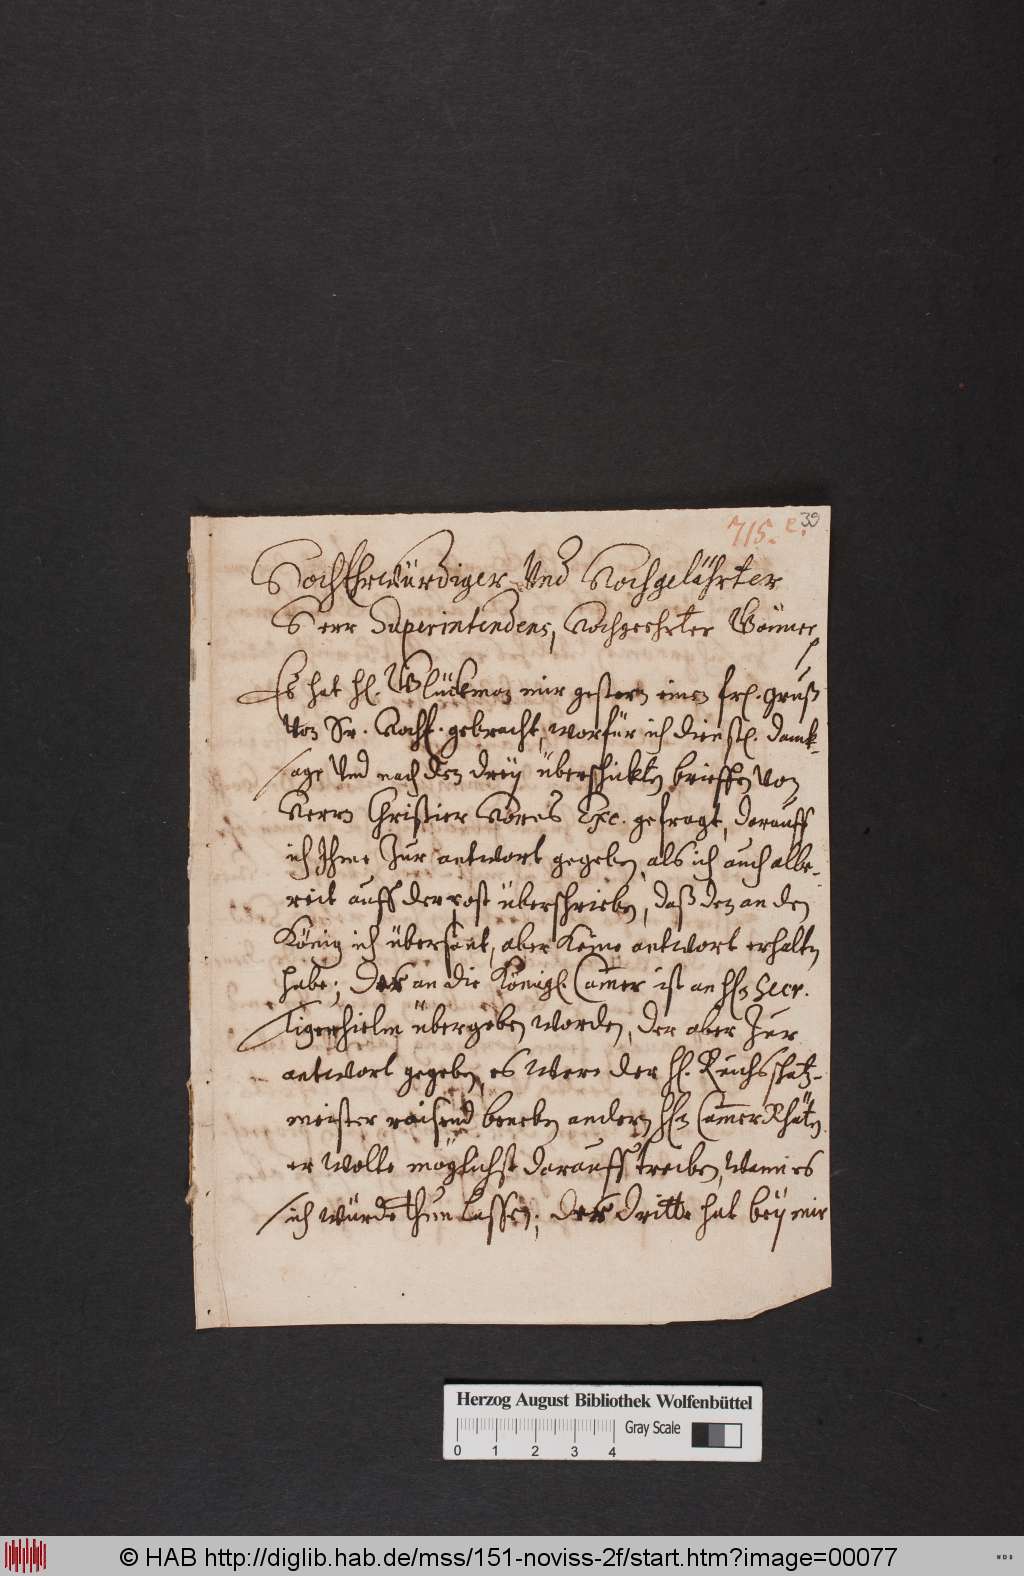 715.
e.
39
HochEhrwürdiger Und Hochgelährter
Herr Superintendens, Hochgeehrter Gönner
Es hat Hl. Glückman mir gestern einen frl. gruß
Von Sr. HochE. gebracht, worfür ich dienstl. danck-
sage Und nach den drey überschickten brieffen von
Herrn Christier Hornes Exc. gefragt, darauff
ich Ihme Zur antwort gegeben, als ich auch albe-
reit auff der post überschrieben, daß den an den
König ich übersant, aber keine antwort erhalten
habe; Der an die Königl. Camer ist an Hln Secr.
Tigerhielm übergeben worden, der aber Zur
antwort gegeben, es were der Hl. Reichsschatz-
meister reisend beneben andern Hln CamerRhäten
er wolte möglichst darauff treiben, wenn es
ich würde thun lassen; Der dritte hat bey mir
Herzog August Bibliothek Wolfenbüttel
Gray Scale
0 1 2 3 4
© HAB http://diglib.hab.de/mss/151-noviss-2f/start.htm?image=00077